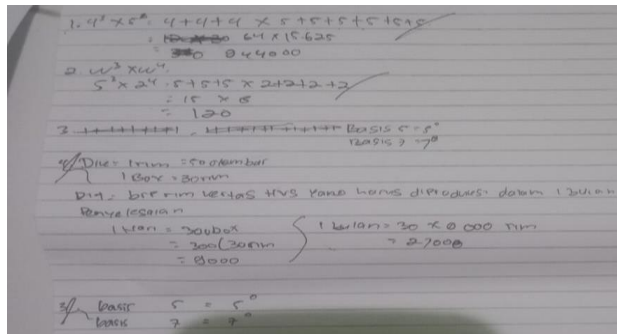 1. 4³ × 5⁶ = 4+4+4 × 5+5+5+5+5+5
= 64 × 15.625
= 0 44000
2. w³ × w⁴
5³ × 2⁴ = 5+5+5 × 2+2+2+2
= 15 × 8
= 120
3. Basis 5 = 5⁰
Basis 7 = 7⁰
4/ Dik = 1 rim = 500 lembar
1 Box = 30 rim
Dit = rim kertas HVS yang harus diproduksi dalam 1 bulan
Penyelesaian
1 Hari = 300 box
1 bulan = 30 × 9 000 rim
= 300 (30 rim
= 27000
= 9000
3/ basis 5 = 5⁰
basis 7 = 7⁰